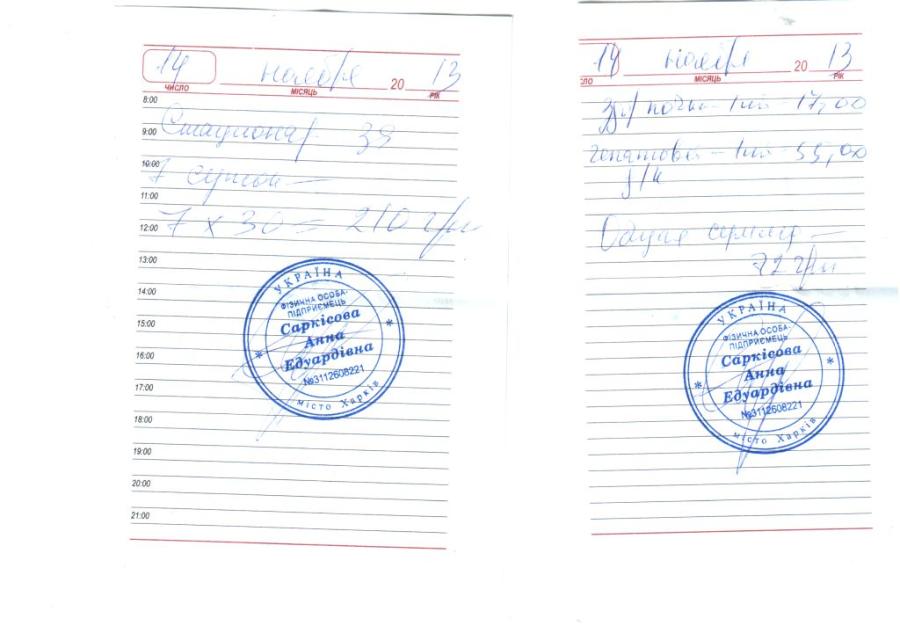 14 ноября 20 13
ЧИСЛО МІСЯЦЬ РІК
8:00
9:00 Стационар
10:00
7 суток —
11:00
12:00 7 х 30 = 210 грн
13:00
14:00
15:00
16:00
17:00
18:00
19:00
20:00
21:00
УКРАЇНА
ФІЗИЧНА ОСОБА-
ПІДПРИЄМЕЦЬ
Саркісова
Анна
Едуардівна
№3112608221
місто Харків
14 ноября 20 13
ЛО МІСЯЦЬ РІК
почки - 1 шт - 17,00
- 1 шт - 55,00
Общая сумма —
72 грн
УКРАЇНА
ФІЗИЧНА ОСОБА-
ПІДПРИЄМЕЦЬ
Саркісова
Анна
Едуардівна
№3112608221
місто Харків